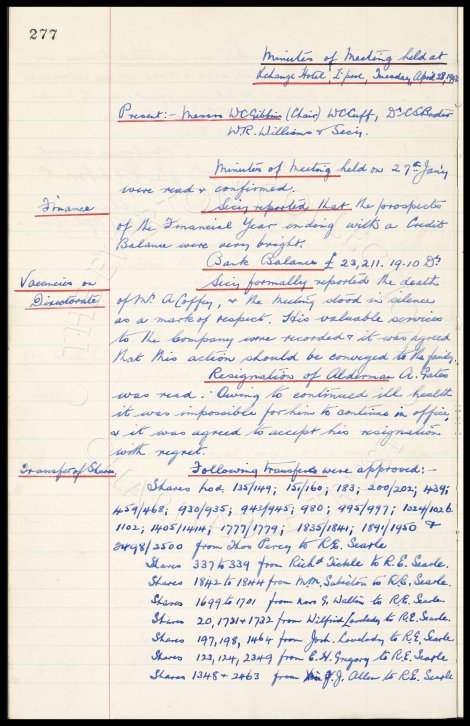 277
Minutes of Meeting held at
Xchange Hotel, L'pool, Tuesday, April 28, 1942
Present:- Messrs W C Gibbins (Chair) W C Cuff, Dr C S Baxter
W. R. Williams & Secy.
Minutes of Meeting held on 27th Jan'y
were read & confirmed.
Finance
Secy reported that the prospects
of the Financial Year ending with a Credit
Balance were very bright.
Bank Balance £ 23,211. 19. 10 Dr
Vacancies on
Directorate
Secy formally reported the death
of Mr A Coffey, & the meeting stood in silence
as a mark of respect. His valuable services
to the Company were recorded & it was agreed
that this action should be conveyed to the family.
Resignation of Alderman A. Gates
was read. Owing to continued ill health
it was impossible for him to continue in office
& it was agreed to accept his resignation
with regret.
Transfer of Shares
Following Transfers were approved:-
Shares Nos. 135/149; 151/160; 183; 200/202; 439;
459/468; 930/935; 943/945; 980; 995/997; 1024/1026
1102; 1405/1414; 1777/1779; 1835/1841; 1891/1950 &
2498/2500 from Thos Percy to R.E. Searle
Shares 337 to 339 from Richd Tickle to R.E. Searle.
Shares 1842 to 1844 from to R.E. Searle.
Shares 1699 to 1701 from G. Walton to R.E. Searle.
Shares 20, 1731 + 1732 from Wilfrid to R.E. Searle.
Shares 197, 198, 1464 from Josh. to R.E. Searle.
Shares 123, 124, 2349 from E. H. Gregory to R.E. Searle
Shares 1348 + 2463 from J. Allen to R.E. Searle.